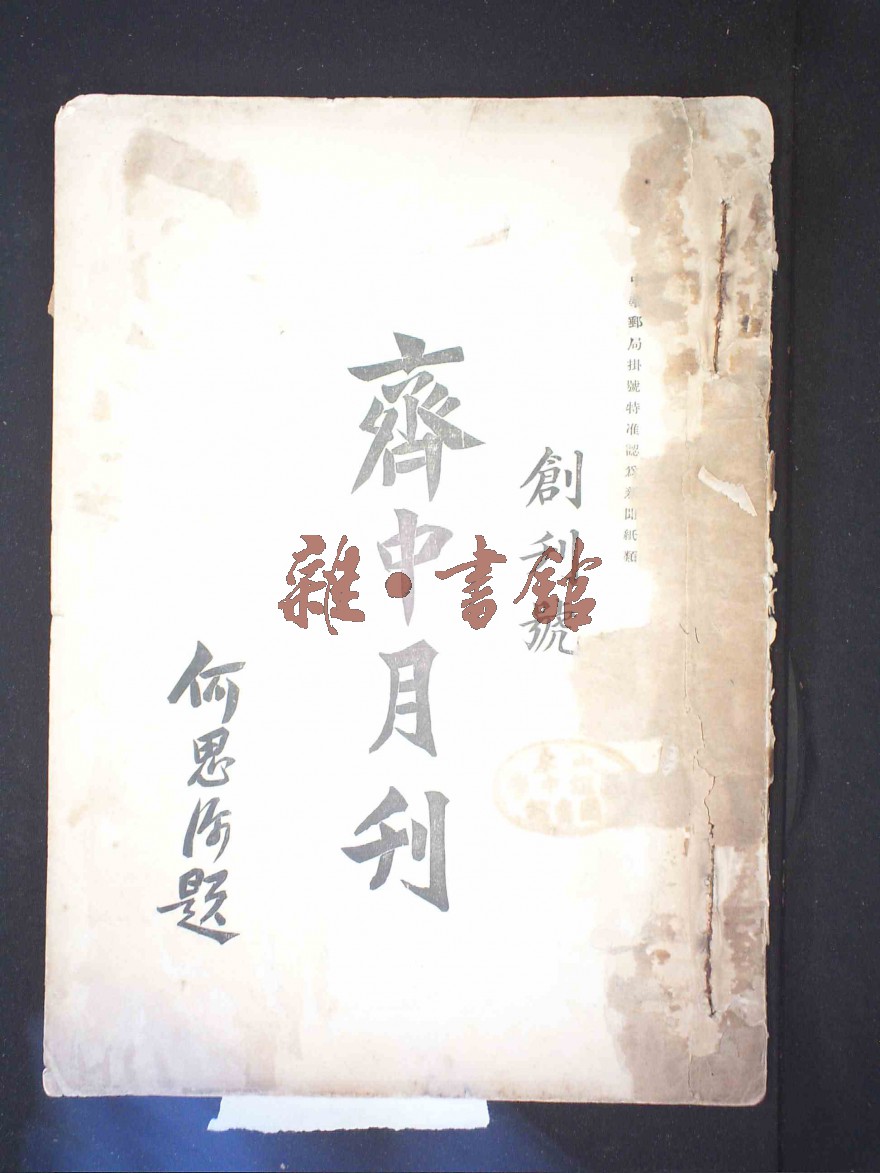 中華郵局掛號特准認爲新聞紙類
創刊號
齊中月刊
何思源題
雜·書館